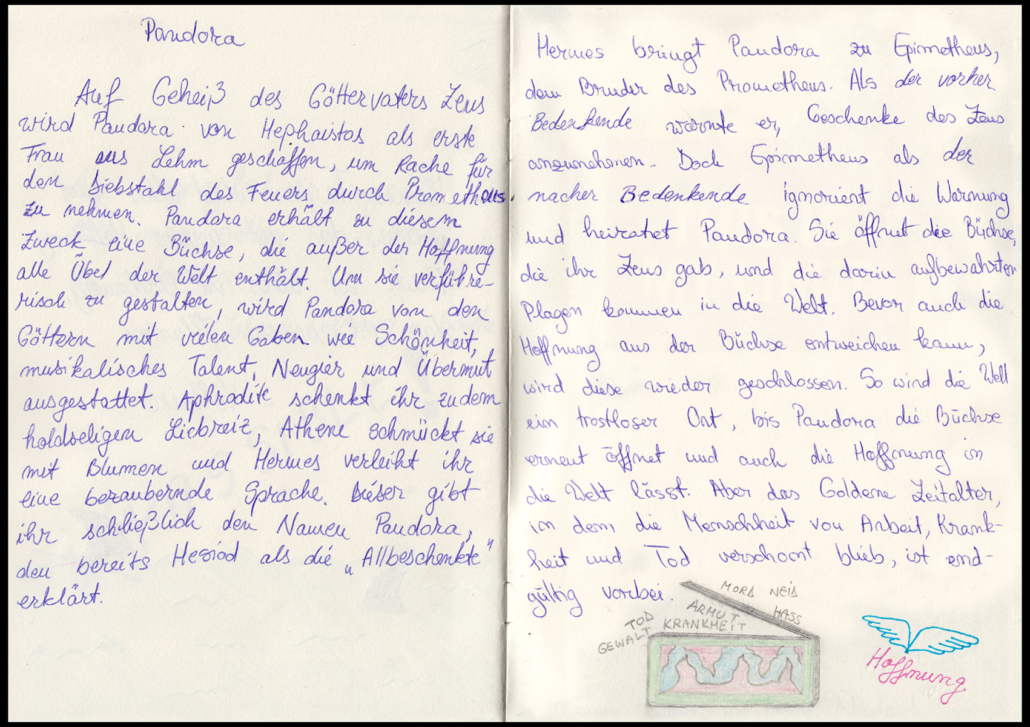 Pandora
Auf Geheiß des Göttervaters Zeus
wird Pandora von Hephaistos als erste
Frau aus Lehm geschaffen, um Rache für
den Diebstahl des Feuers durch Prometheus
zu nehmen. Pandora erhält zu diesem
Zweck eine Büchse, die außer der Hoffnung
alle Übel der Welt enthält. Um sie verführe-
risch zu gestalten, wird Pandora von den
Göttern mit vielen Gaben wie Schönheit,
musikalisches Talent, Neugier und Übermut
ausgestattet. Aphrodite schenkt ihr zudem
holdseligen Liebreiz, Athene schmückt sie
mit Blumen und Hermes verleiht ihr
eine bezaubernde Sprache. Dieser gibt
ihr schließlich den Namen Pandora,
den bereits Hesiod als die „Allbeschenkte"
erklärt.
Hermes bringt Pandora zu Epimetheus,
dem Bruder des Prometheus. Als der vorher
Bedenkende warnte er, Geschenke des Zeus
anzunehmen. Doch Epimetheus als der
nacher Bedenkende ignoriert die Warnung
und heiratet Pandora. Sie öffnet die Büchse,
die ihr Zeus gab, und die darin aufbewahrten
Plagen kommen in die Welt. Bevor auch die
Hoffnung aus der Büchse entweichen kann,
wird diese wieder geschlossen. So wird die Welt
ein trostloser Ort, bis Pandora die Büchse
erneut öffnet und auch die Hoffnung in
die Welt lässt. Aber das Goldene Zeitalter,
in dem die Menschheit von Arbeit, Krank-
heit und Tod verschont blieb, ist end-
gültig vorbei.
MORD NEID
HASS
ARMUT
TOD KRANKHEIT
GEWALT
Hoffnung